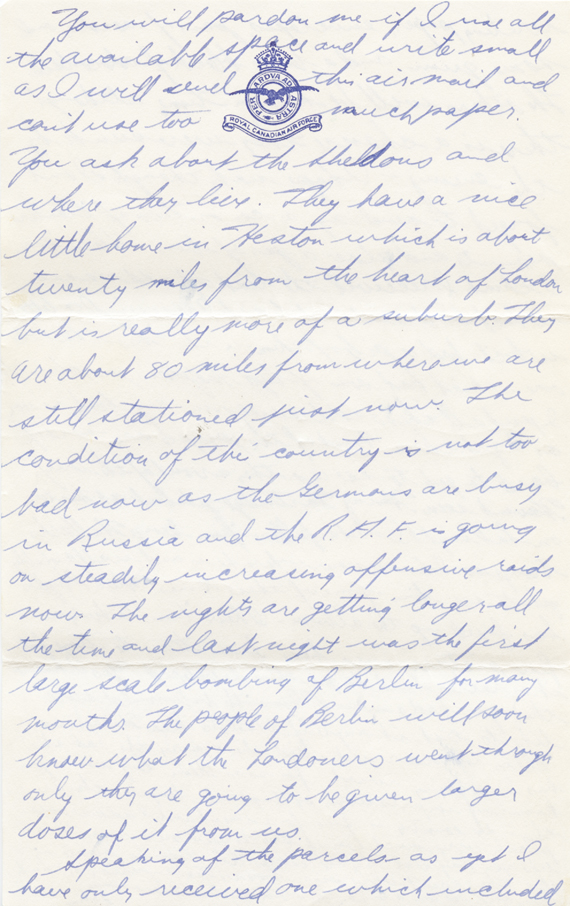 You will pardon me if I use all
the available space and write small
as I will send this airmail and
can't use too much paper.
PER ARDVA AD ASTRA
ROYAL CANADIAN AIR FORCE
You ask about the Sheldons and
where they live. They have a nice
little home in Heston which is about
twenty miles from the heart of London
but is really more of a suburb. They
are about 80 miles from where we are
still stationed just now. The
condition of the country is not too
bad now as the Germans are busy
in Russia and the R. A. F. is going
on steadily increasing offensive raids
now. The nights are getting longer all
the time and last night was the first
large scale bombing of Berlin for many
months. The people of Berlin will soon
know what the Londoners went through
only they are going to be given larger
doses of it from us.
Speaking of the parcels as yet I
have only received one which included